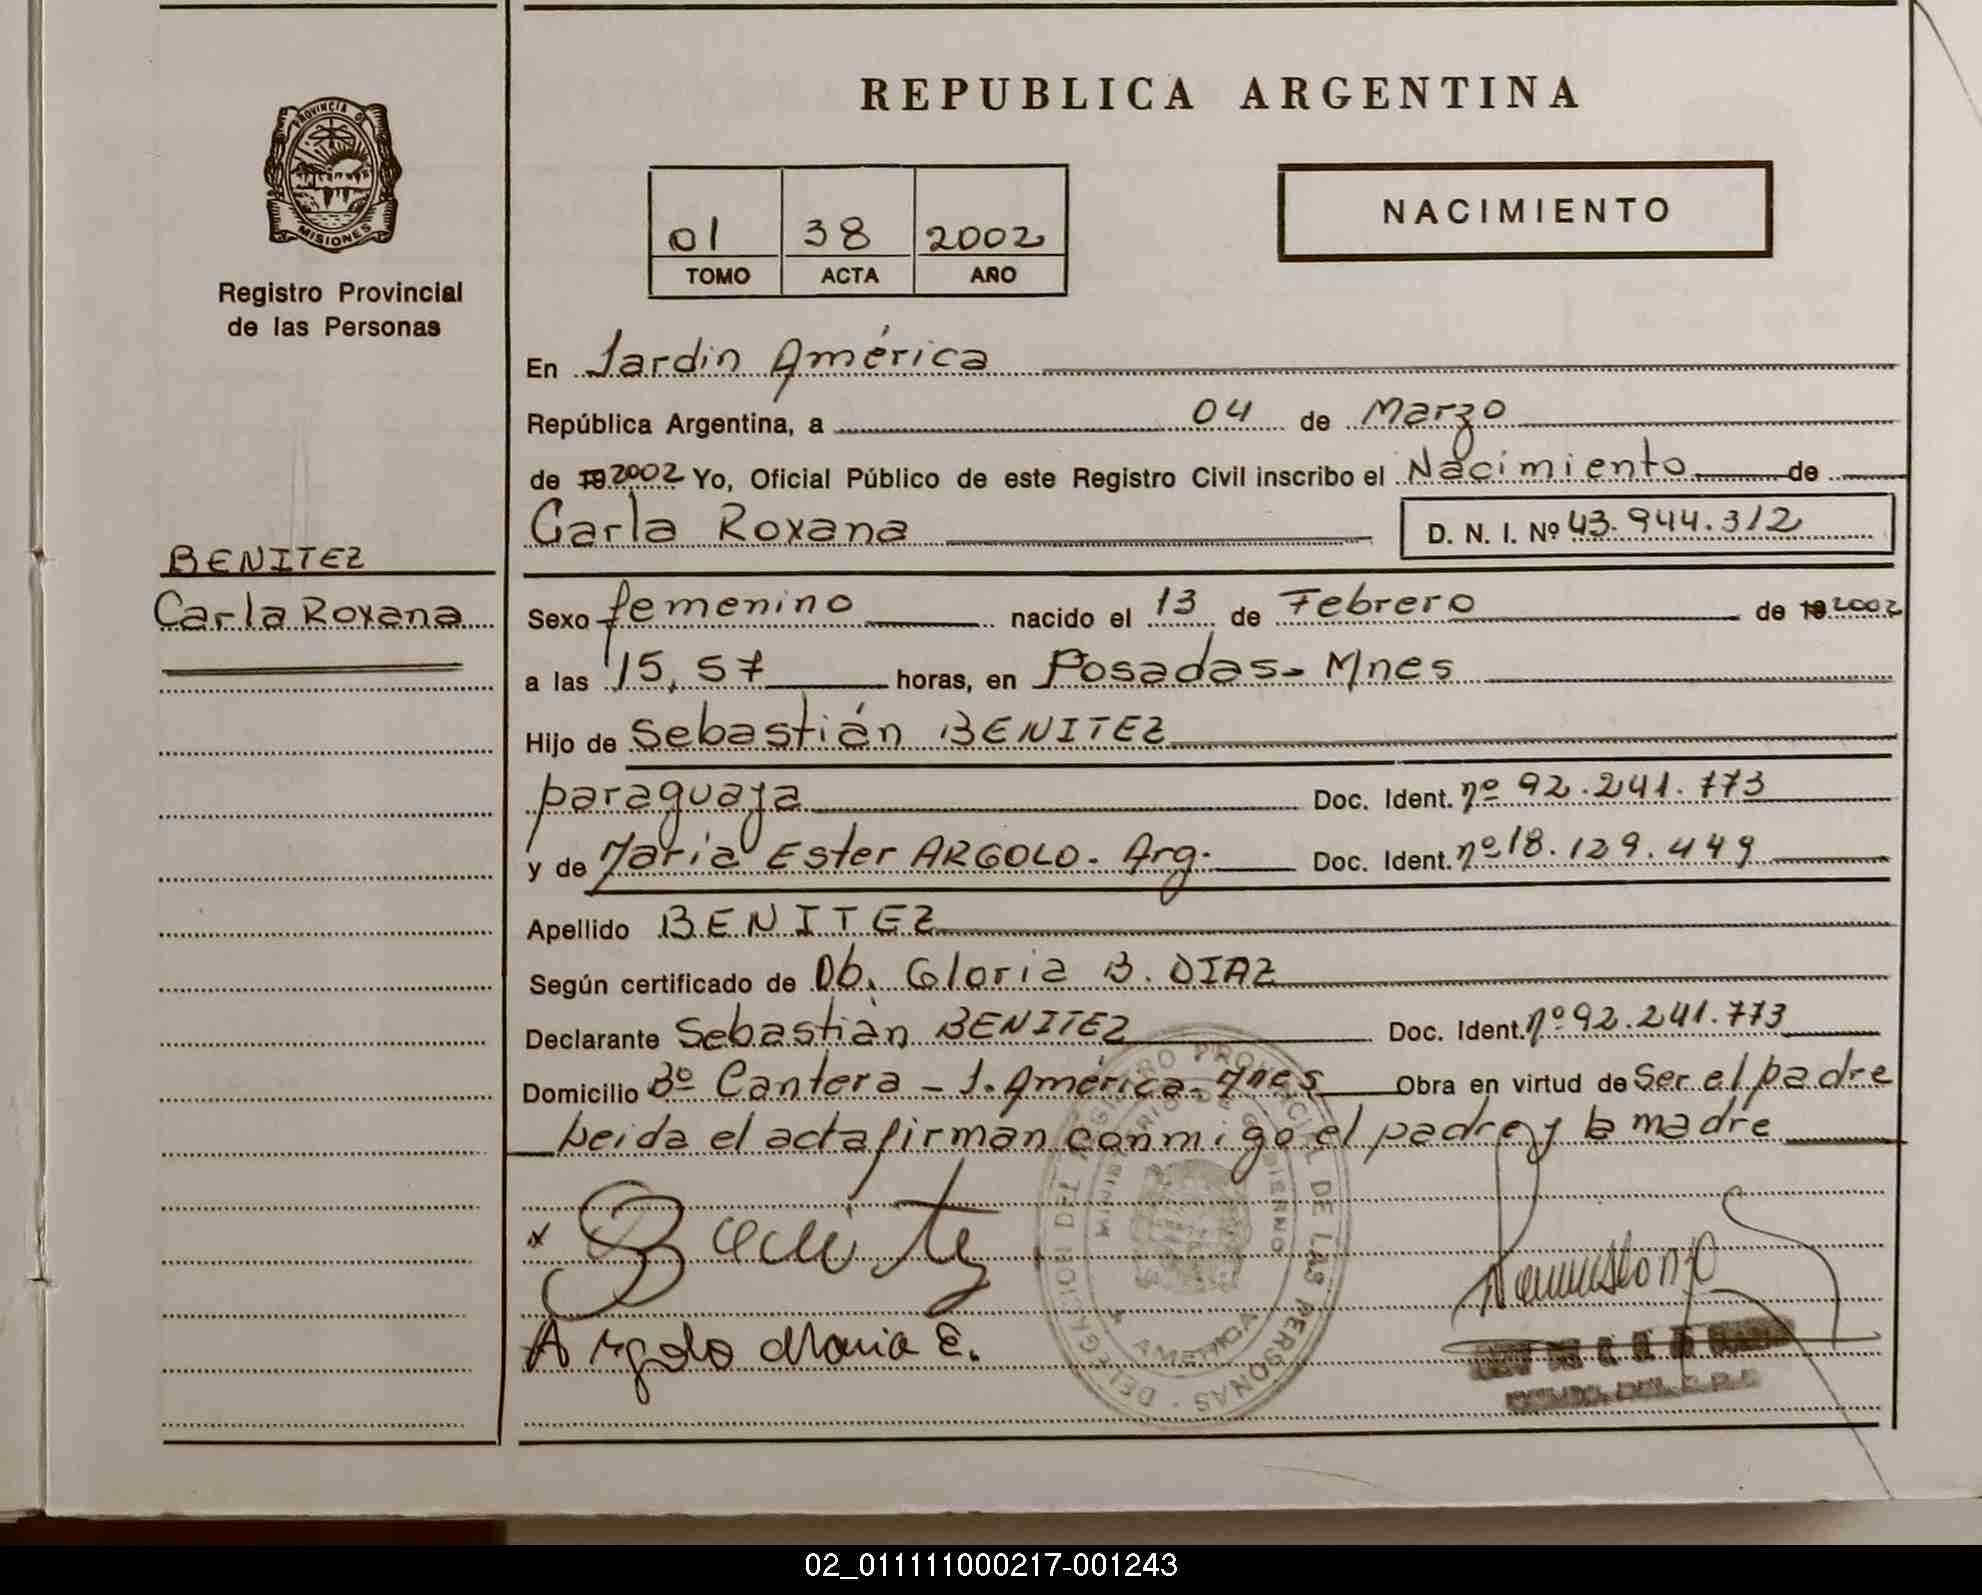 REPUBLICA ARGENTINA
PROVINCIA DE
MISIONES
Registro Provincial
de las Personas
01 38 2002
TOMO ACTA AÑO
NACIMIENTO
En Jardin América
República Argentina, a 04 de Marzo
de 19 2002 Yo, Oficial Público de este Registro Civil inscribo el Nacimiento de
Carla Roxana D. N. I. Nº 43.944.312
BENITEZ
Carla Roxana
Sexo femenino nacido el 13 de Febrero de 19 2002
a las 15,57 horas, en Posadas - Mnes
Hijo de Sebastián BENITEZ
paraguaya Doc. Ident. nº 92.241.773
y de Maria Ester ARGOLO - Arg. Doc. Ident. nº 18.129.449
Apellido BENITEZ
Según certificado de Ob. Gloria B. DIAZ
Declarante Sebastián BENITEZ Doc. Ident. nº 92.241.773
Domicilio Bº Cantera - J. América - Mnes Obra en virtud de Ser el padre
Leida el acta firman conmigo el padre y la madre
x Benitez
Argolo Maria E.
DELEGACION DEL REGISTRO PROVINCIAL DE LAS PERSONAS
MINISTERIO DE GOBIERNO
AMERICA
02_011111000217-001243